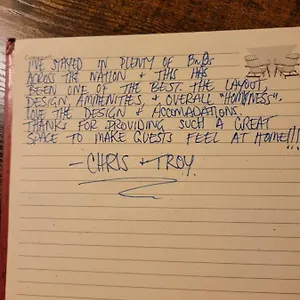 I'VE STAYED IN PLENTY OF BnBs
ACROSS THE NATION & THIS HAS
BEEN ONE OF THE BEST. THE LAYOUT,
DESIGN, AMMENITIES, & OVERALL "HOMINESS".
LOVE THE DESIGN & ACCOMADATIONS.
THANKS FOR PROVIDING SUCH A GREAT
SPACE TO MAKE GUESTS FEEL AT HOME!!!
- CHRIS & TROY